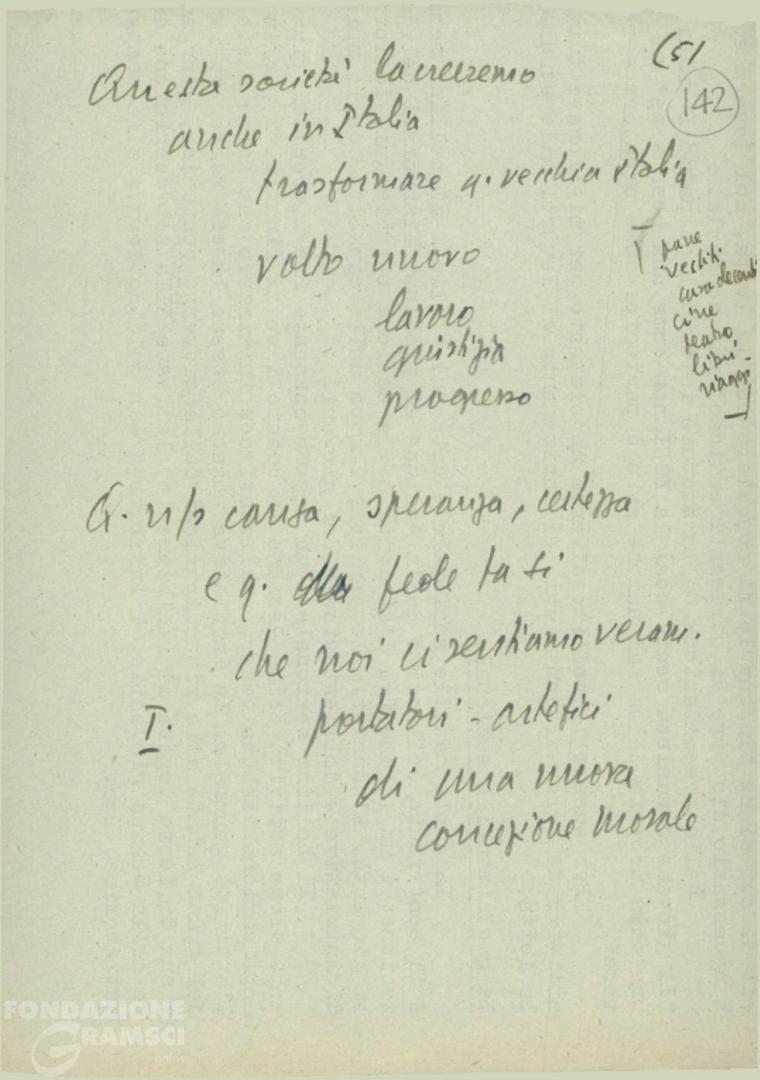 (5)
142
Questa società la creeremo
anche in Italia
trasformare q. vecchia italia
volto nuovo
lavoro
giustizia
progresso
pane
vestiti
casa decente
cine
teatro
libri
viaggi
Q. n/s causa, speranza, certezza
e q. fede fa sì
che noi ci sentiamo veram.
I. portatori - artefici
di una nuova
concezione morale
FONDAZIONE
GRAMSCI
onlus